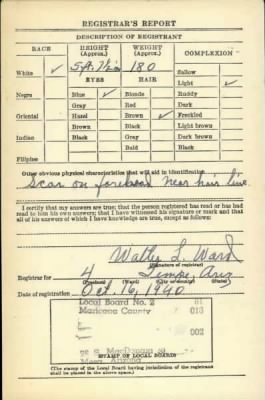 REGISTRAR'S REPORT
DESCRIPTION OF REGISTRANT
RACE HEIGHT (Approx.) WEIGHT (Approx.) COMPLEXION
White ✓ 5 ft. 7½ in 180 Sallow
EYES HAIR Light ✓
Negro Blue ✓ Blonde Ruddy
Gray Red Dark
Oriental Hazel Brown ✓ Freckled
Brown Black Light brown
Indian Black Gray Dark brown
Bald Black
Filipino
Other obvious physical characteristics that will aid in identification
Scar on forehead near hair line.
I certify that my answers are true; that the person registered has read or has had
read to him his own answers; that I have witnessed his signature or mark and that
all of his answers of which I have knowledge are true, except as follows:
Walter L. Ward
(Signature of registrar)
Registrar for 4 Tempe, Ariz
Date of registration Oct. 16, 1940
Local Board No. 2 01
Maricopa County 013
002
Mesa, Arizona
(STAMP OF LOCAL BOARD)
(The stamp of the Local Board having jurisdiction of the registrant
shall be placed in the above space.)